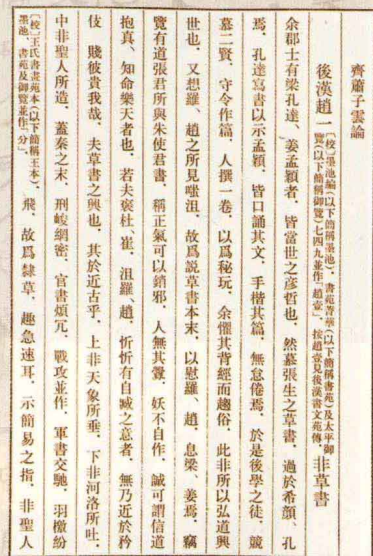 齊蕭子雲論
後漢趙一〔校〕墨池編(以下簡稱墨池)、書苑菁華(以下簡稱書苑)及太平御
覽(以下簡稱御覽)七四九並作「趙壹」。按趙壹見後漢書文苑傳。非草書
余郡士有梁孔達、姜孟穎者,皆當世之彥哲也,然慕張生之草書,過於希顏、孔
焉。孔達寫書以示孟穎,皆口誦其文,手楷其篇,無怠倦焉。於是後學之徒,競
慕二賢,守令作篇,人撰一卷,以爲秘玩。余懼其背經而趨俗,此非所以弘道興
世也。又想羅、趙之所見嗤沮,故爲說草書本末,以慰羅、趙,息梁、姜焉。竊
覽有道張君所與朱使君書,稱正氣可以銷邪,人無其釁,妖不自作,誠可謂信道
抱真,知命樂天者也。若夫褒杜、崔,沮羅、趙,忻忻有自臧之意者,無乃近於矜
伎,賤彼貴我哉。夫草書之興也,其於近古乎。上非天象所垂,下非河洛所吐,
中非聖人所造。蓋秦之末,刑峻網密,官書煩冗,戰攻並作,軍書交馳,羽檄紛
〔校〕王氏書畫苑本(以下簡稱王本)、
墨池、書苑及御覽並作「分」。飛,故爲隸草,趣急速耳,示簡易之指,非聖人